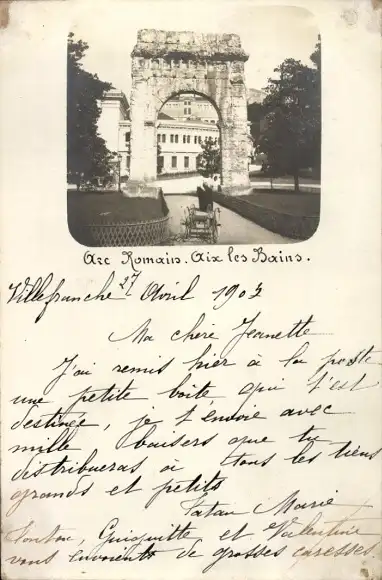 Arc Romain. Aix les Bains.
Villefranche 27 Avril 1903
Ma chère Jeanette
J'ai remis hier à la poste
une petite boîte qui t'est
destinée, je t'envoie avec
mille baisers que tu
distribueras à tous les tiens
grands et petits
Tatan Marie
et Valentine
vous envoient de grosses caresses.